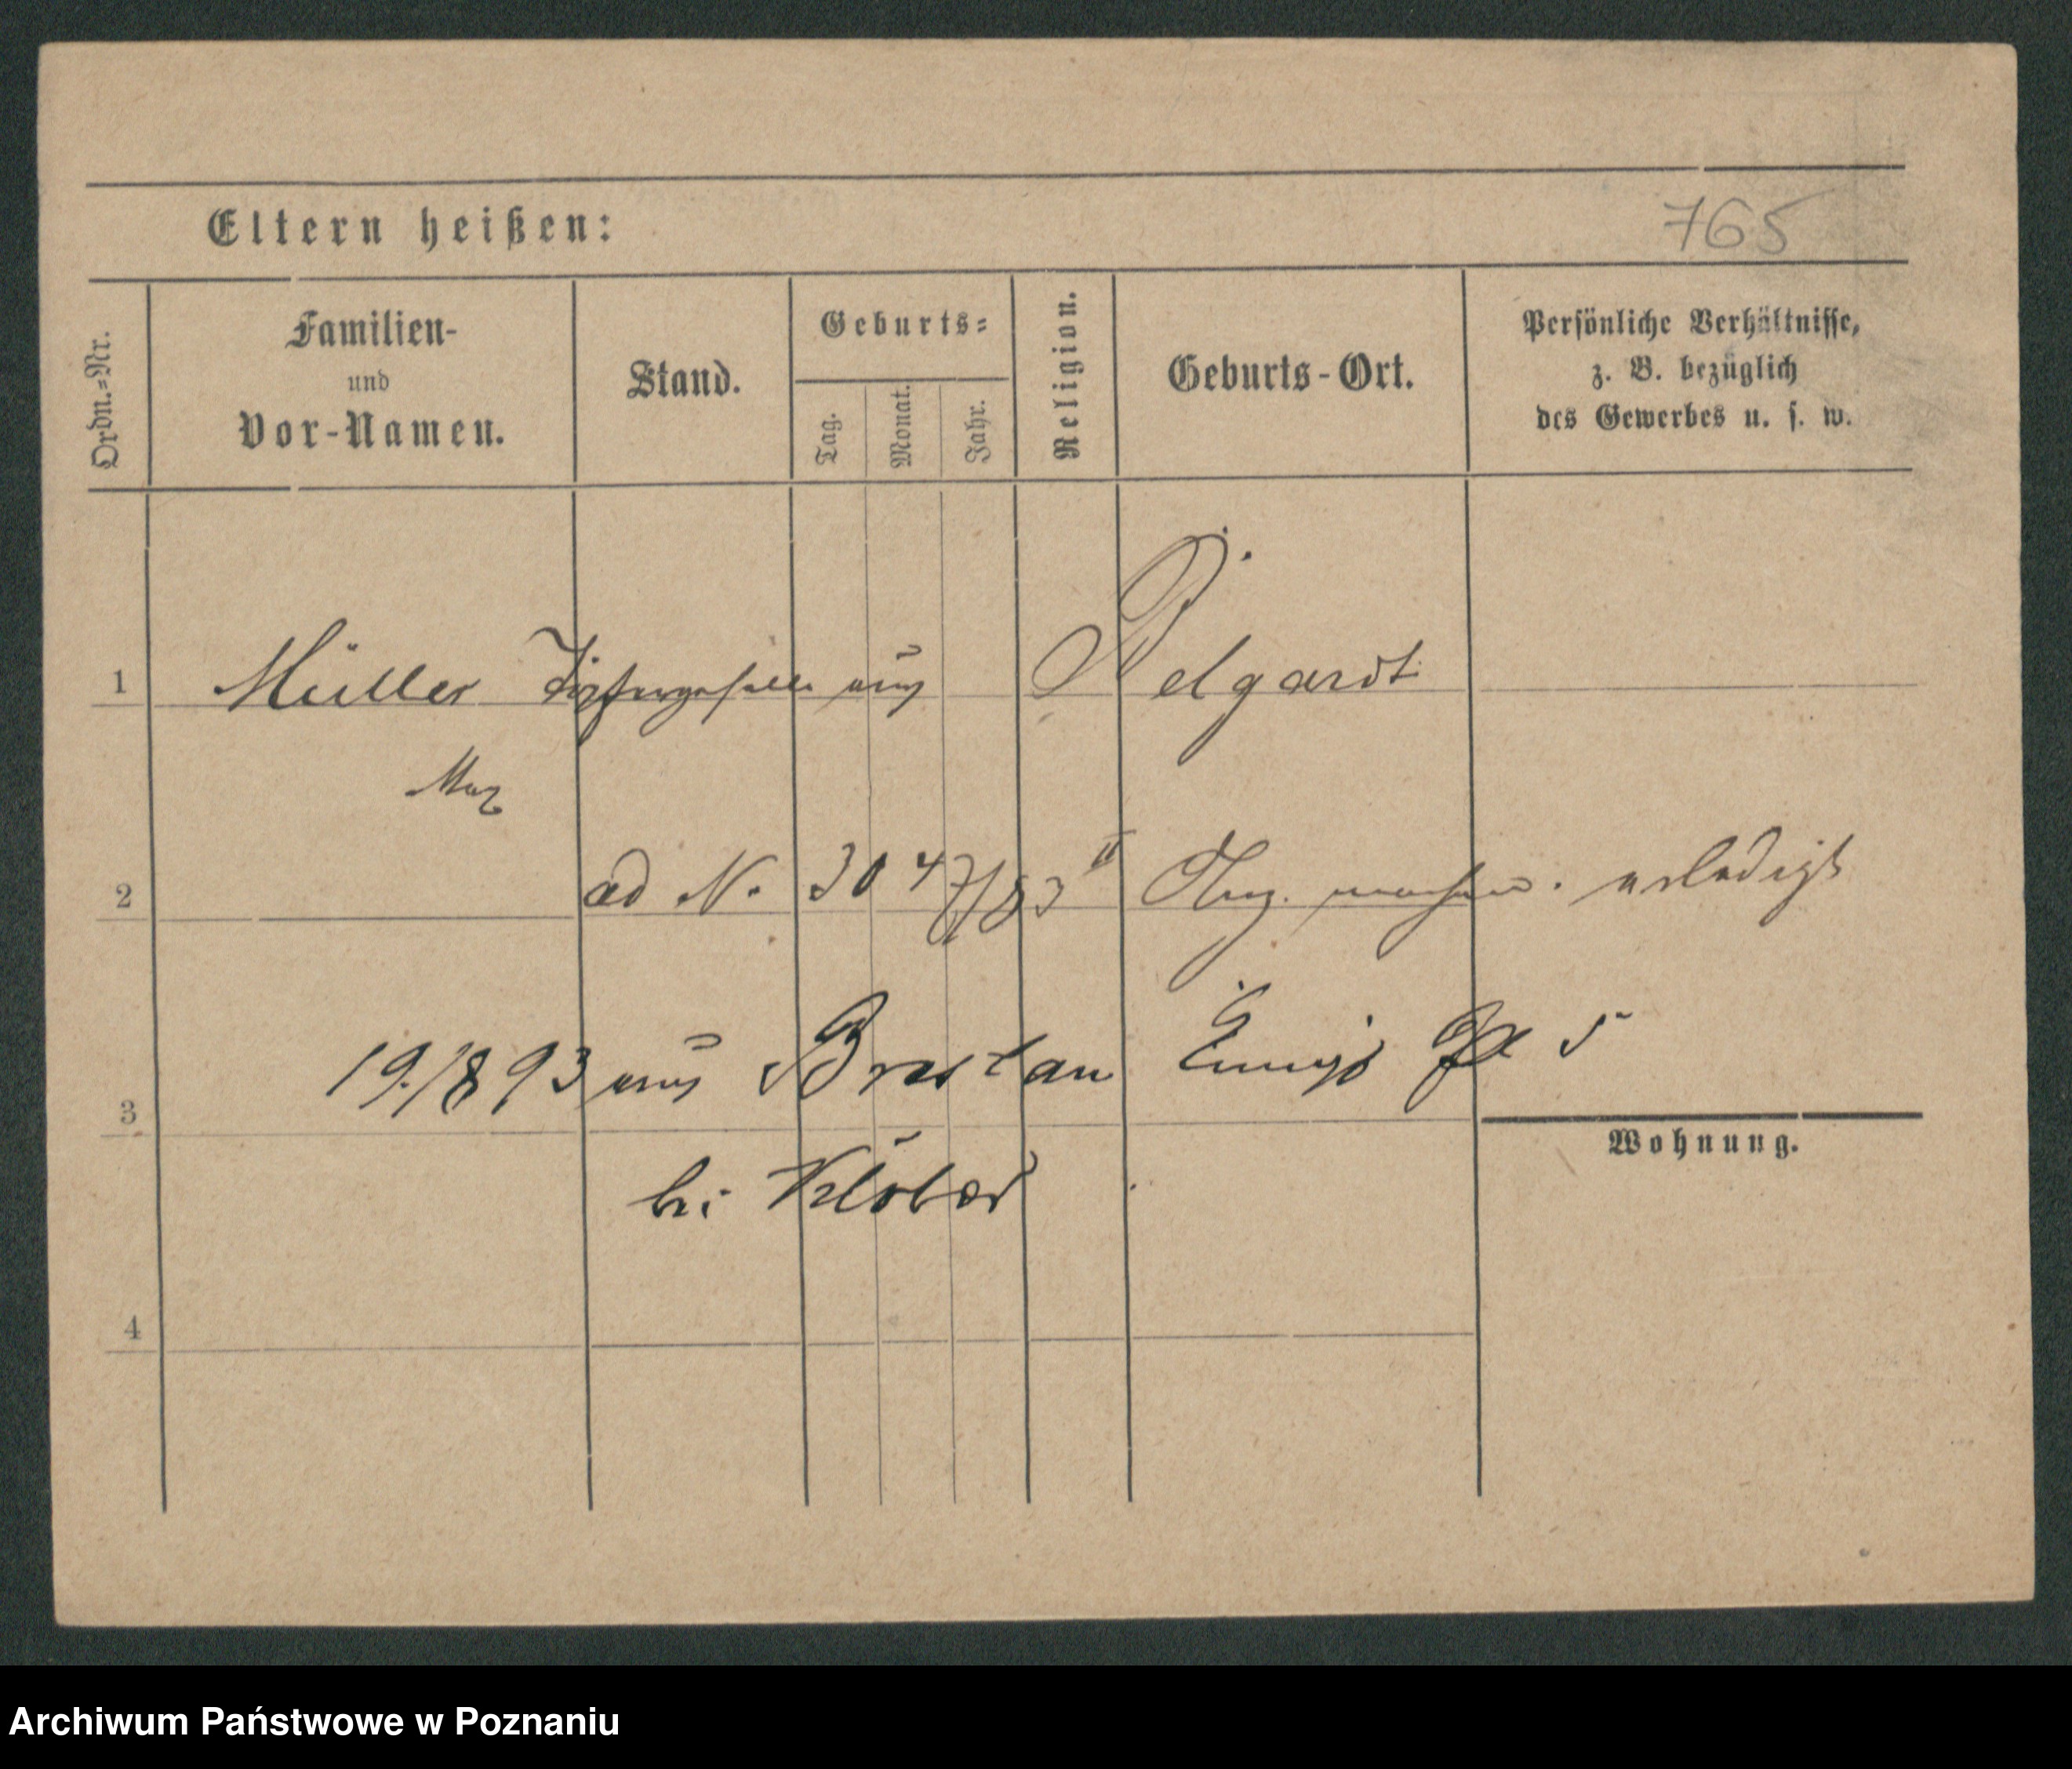 Eltern heißen:
765
Ordn.=Nr.
Familien-
und
Vor-Namen.
Stand.
Geburts=
Tag.
Monat.
Jahr.
Religion.
Geburts-Ort.
Persönliche Verhältnisse,
z. B. bezüglich
des Gewerbes u. s. w.
1 Müller Töpfergeselle aus Belgardt
Max
2 ad N. 3047/83 II Anz. machen. erledigt
3 19./8 93 aus Breslau Pl 5
Wohnung.
bei Klöber
4
Archiwum Państwowe w Poznaniu